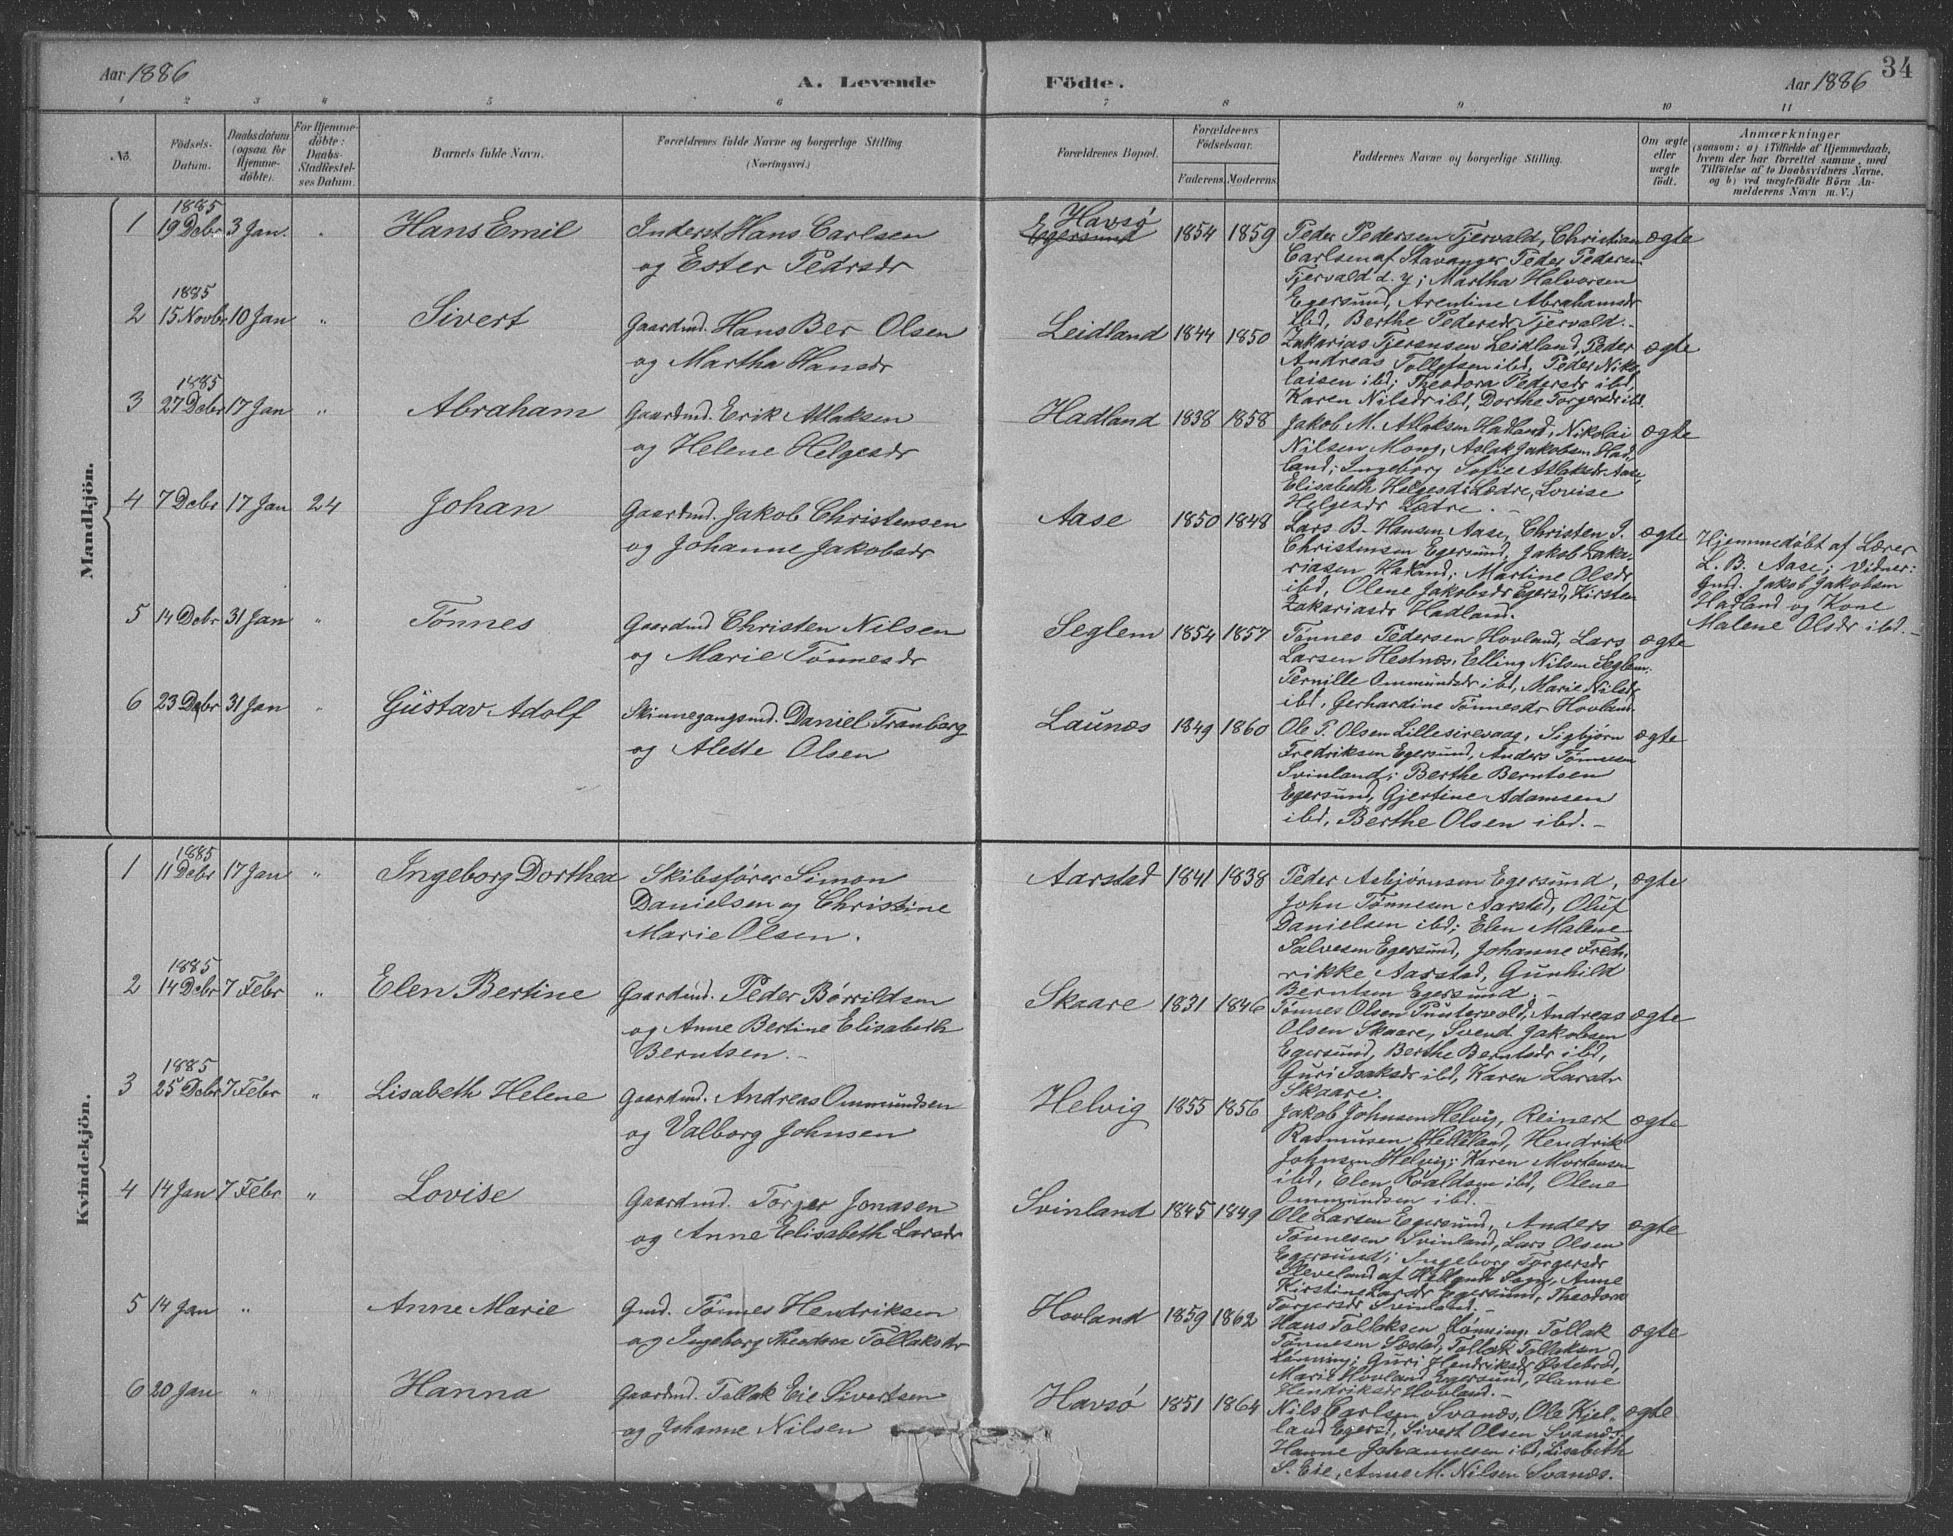 Aar 1886
A. Levende Födte.
Aar 1886
34
1 2 3 4 5 6 7 8 9 10 11
No.
Födsels-Datum.
Daabsdatum (ogsaa for Hjemmedöbte).
For Hjemmedöbte: Daabs-Stadfæstelses Datum.
Barnets fulde Navn.
Forældrenes fulde Navne og borgerlige Stilling (Næringsvei.)
Forældrenes Bopæl.
Forældrenes Födselsaar.
Faderens. Moderens.
Faddernes Navne og borgerlige Stilling.
Om ægte eller uægte födt.
Anmærkninger
(saasom: a) i Tilfælde af Hjemmedaab,
hvem der har forrettet samme, med
Tilföielse af to Daabsvidners Navne,
og b) ved uægtefödte Börn Anmelderens Navn m. V.)
Mandkjön.
1 1885 19 Decbr 3 Jan. " Hans Emil
Inderst Hans Carlsen
og Ester Pedrsdr
Havsø
Egersund
1854 1859
Peder Pedersen Tjervald, Christian
Carlsen af Stavanger Peder Pedersen
Tjervald d. y; Martha Halvorsen
Egersund, Arentine Abrahamsdr
ibd, Berthe Pedersdr Tjervald.
ægte
2 1885 15 Novbr 10 Jan " Sivert
Gaardmd. Hans Ber Olsen
og Martha Hansdr
Leidland 1844 1850
Zakarias Tjeransen Leidland, Peder
Andreas Tollefsen ibd, Peder Nikolaisen ibd; Theodora Pedersdr ibd,
Karen Nilsdr ibd, Dorthe Torgersdr ibd.
ægte
3 1885 27 Decbr 17 Jan " Abraham
Gaardmd. Erik Atlaksen
og Helene Helgesdr
Hadland 1838 1858
Jakob M. Atlaksen Hadland, Nikolai
Nilsen Mong, Aslak Jakobsen Hadland; Ingeborg Sofie Atlaksdr Aase,
Elisabeth Helgesdr Lædre, Lovise
Helgesdr Lædre.
ægte
4 7 Decbr 17 Jan 24 Johan
Gaardmd. Jakob Christensen
og Johanne Jakobsdr
Aase 1850 1848
Lars B. Hansen Aase, Christen J.
Christensen Egersund, Jakob Zakariasen Hadland; Martine Olsdr
ibd, Olene Jakobsdr Egersd, Kirsten
Zakariasdr Hadland.
ægte
Hjemmedøbt af Lærer
L. B. Aase; Vidner:
Gmd. Jakob Jakobsen
Hadland og Kone
Malene Olsdr ibd.
5 14 Decbr 31 Jan " Tønnes
Gaardmd Christen Nilsen
og Marie Tønnesdr
Seglem 1854 1857
Tønnes Pedersen Hovland, Lars
Larsen Hestnæs, Elling Nilsen Seglem;
Pernille Ommundsdr ibd, Marie Nilsdr
ibd, Gerhardine Tønnesdr Hovland.
ægte
6 23 Decbr 31 Jan " Gustav Adolf
Skinnegangsmd. Daniel Tranberg
og Alette Olsen
Launæs 1849 1860
Ole P. Olsen Lillesirevaag, Sigbjørn
Fredriksen Egersund, Anders Tønnesen
Svinland; Berthe Berntsen
Egersund, Gjertine Adamsen
ibd, Berthe Olsen ibd.
ægte
Kvindekjön.
1 1885 11 Decbr 17 Jan " Ingeborg Dorthea
Skibsfører Simon
Danielsen og Christine
Marie Olsen.
Aarstad 1841 1838
Peder Asbjørnsen Egersund,
John Tønnesen Aarstad, Oluf
Danielsen ibd; Elen Malene
Salvesen Egersund, Johanne Fredrikke Aarstad, Gunhild
Berntsen Egersund.
ægte
2 1885 14 Decbr 7 Febr " Elen Bertine
Gaardmd. Peder Børrildsen
og Anne Bertine Elisabeth
Berntsen.
Skaare 1831 1846
Tønnes Olsen Puntervold, Andreas
Olsen Skaare, Svend Jakobsen
Egersund, Berthe Berntsdr ibd,
Guri Isaksdr ibd, Karen Larsdr
Skaare.
ægte
3 1885 25 Decbr 7 Febr " Lisabeth Helene
Gaardmd. Andreas Ommundsen
og Valborg Johnsen
Helvig 1855 1856
Jakob Johnsen Helvig, Reinert
Rasmussen Helleland, Hendrik
Johnsen Helvig; Karen Mortensen
ibd, Elen Roaldsen ibd, Olene
Ommundsen ibd.
ægte
4 14 Jan 7 Febr " Lovise
Gaardmd. Torger Jonasen
og Anne Elisabeth Larsdr
Svinland 1845 1849
Ole Larsen Egersund, Anders
Tønnesen Svinland, Lars Olsen
Egersund; Ingeborg Torgersdr
Sleveland af Hellands Sogn, Anne
Kirstine Larsdr Egersund, Theodora
Torgersdr Svinland.
ægte
5 14 Jan " Anne Marie
Gmd. Tønnes Hendriksen
og Ingeborg Theodora Tollaksdr
Hovland 1859 1862
Hans Tollaksen Lønning, Tollak
Tønnesen Sæstad, Tollak Tollaksen
Lønning; Guri Hendriksdr Østebrød,
Marie Hovland Egersund, Hanne
Hendriksdr Hovland.
ægte
6 20 Jan " Hanna
Gaardmd. Tollak Eie Sivertsen
og Johanne Nilsen
Havsø 1851 1864
Nils Carlsen Svanæs, Ole Kjelland Egersd, Sivert Olsen Svanæs;
Hanne Johannesen ibd, Lisabeth
S. Eie, Anne M. Nilsen Svanæs.
ægte